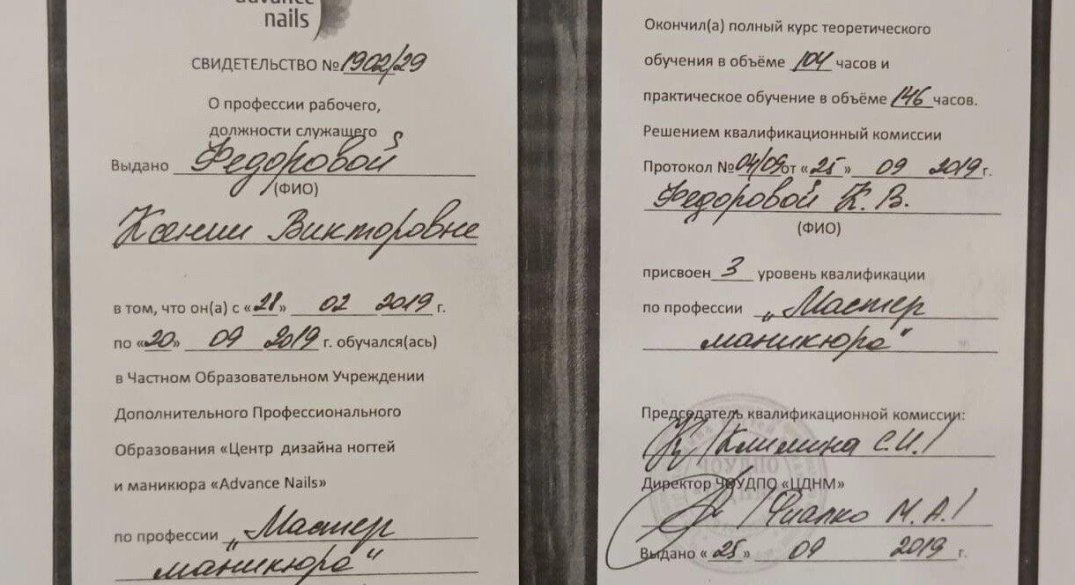 advance
nails
СВИДЕТЕЛЬСТВО № 1902/29
О профессии рабочего,
должности служащего
Выдано Федоровой
(ФИО)
Ксении Викторовне
в том, что он(а) с «28» 02 2019 г.
по «20» 09 2019 г. обучался(ась)
в Частном Образовательном Учреждении
Дополнительного Профессионального
Образования «Центр дизайна ногтей
и маникюра «Advance Nails»
по профессии „Мастер
маникюра“
Окончил(а) полный курс теоретического
обучения в объёме 104 часов и
практическое обучение в объёме 146 часов.
Решением квалификационной комиссии
Протокол № 04/09 от «25» 09 2019 г.
Федоровой К. В.
(ФИО)
присвоен 3 уровень квалификации
по профессии „Мастер
маникюра“
Председатель квалификационной комиссии:
/Климина С.И./
Директор ЧОУДПО «ЦДНМ»
/Фиалко М.А./
Выдано «25» 09 2019 г.
ЧОУДПО